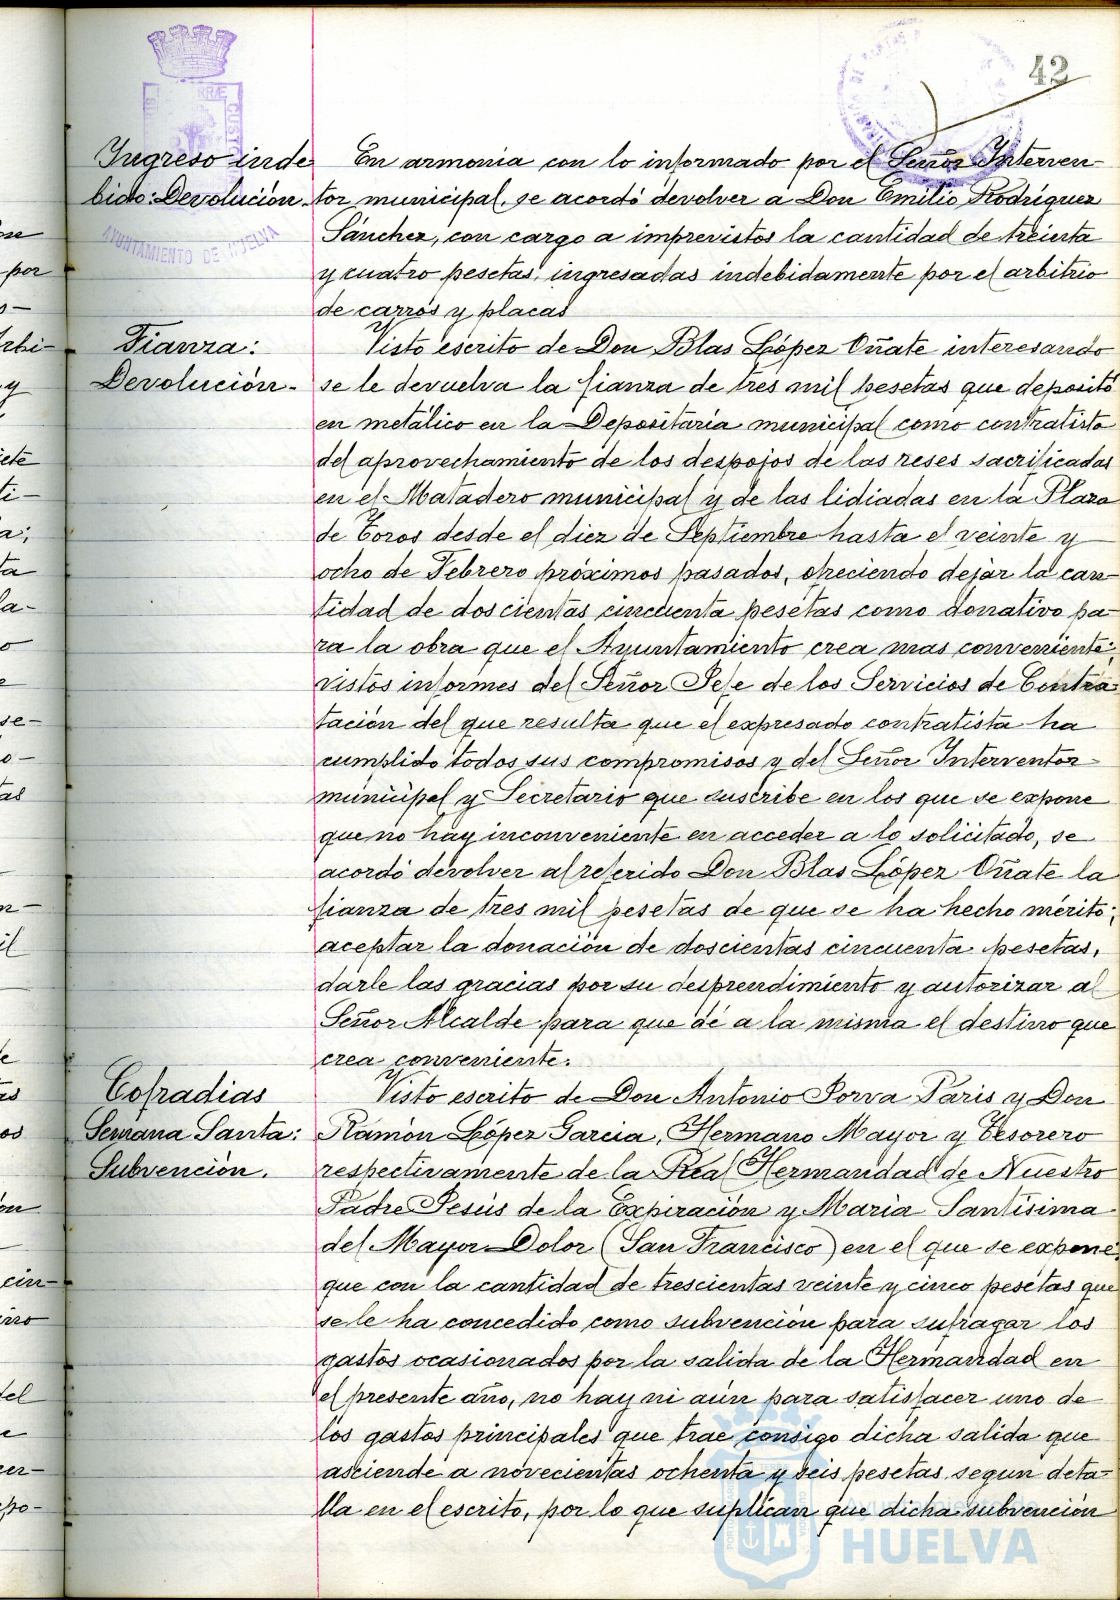 42
Ingreso inde
bido: Devolución.
En armonia con lo informado por el Señor Interven-
tor municipal, se acordó devolver a Don Emilio Rodríguez
Sánchez, con cargo a imprevistos la cantidad de treinta
y cuatro pesetas, ingresadas indebidamente por el arbitrio
de carros y placas
Fianza:
Devolución.-
Visto escrito de Don Blas López Oñate interesando
se le devuelva la fianza de tres mil pesetas que depositó
en metálico en la Depositaría municipal como contratista
del aprovechamiento de los despojos de las reses sacrificadas
en el Matadero municipal y de las lidiadas en la Plaza
de Toros desde el diez de Septiembre hasta el veinte y
ocho de Febrero próximos pasados, ofreciendo dejar la can-
tidad de doscientas cincuenta pesetas como donativo pa-
ra la obra que el Ayuntamiento crea mas conveniente;
vistos informes del Señor Jefe de los Servicios de Contra-
tación del que resulta que el expresado contratista ha
cumplido todos sus compromisos y del Señor Interventor
municipal y Secretario que suscribe en los que se expone
que no hay inconveniente en acceder a lo solicitado, se
acordó devolver al referido Don Blas López Oñate la
fianza de tres mil pesetas de que se ha hecho mérito;
aceptar la donación de doscientas cincuenta pesetas,
darle las gracias por su desprendimiento y autorizar al
Señor Alcalde para que dé a la misma el destino que
crea conveniente.
Cofradias
Semana Santa:
Subvención.
Visto escrito de Don Antonio Jorva Paris y Don
Ramón López Garcia, Hermano Mayor y Tesorero
respectivamente de la Real Hermandad de Nuestro
Padre Jesús de la Expiración y Maria Santísima
del Mayor Dolor (San Francisco) en el que se expone
que con la cantidad de trescientas veinte y cinco pesetas que
se le ha concedido como subvención para sufragar los
gastos ocasionados por la salida de la Hermandad en
el presente año, no hay ni aún para satisfacer uno de
los gastos principales que trae consigo dicha salida que
asciende a novecientas ochenta y seis pesetas segun deta-
lla en el escrito, por lo que suplican que dicha subvención
AYUNTAMIENTO DE HUELVA
Ayuntamiento de
HUELVA